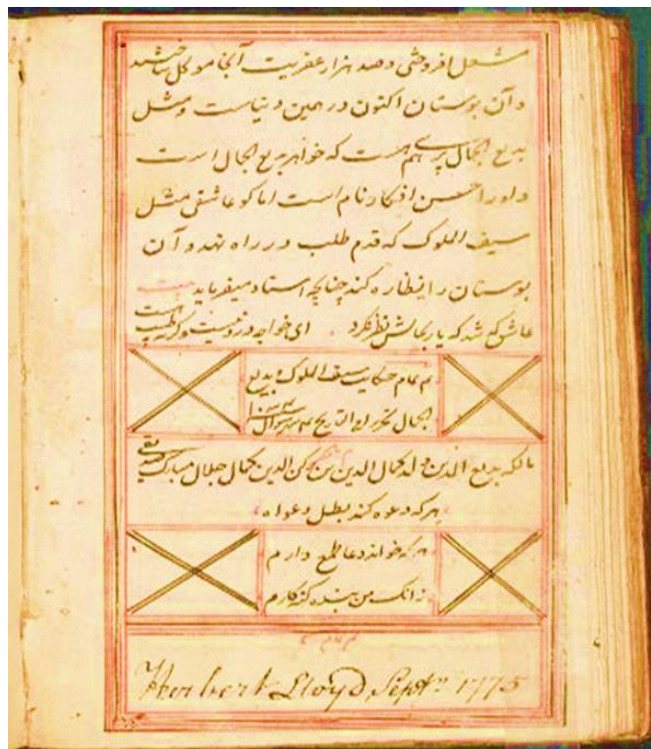 مشعل افروختی و صد هزار عفریت آنجا موکل ساختند
و آن بوستان اکنون در همین دنیاست و مثل
بدیع الجمال پری هم هست که خواهر بدیع الجمال است
و او را حسن افکار نام است اما کو عاشقی مثل
سیف الملوک که قدم طلب در راه نهد و آن
بوستان را نظاره کند چنانچه استاد میفرماید بیت
عاشق که شد که یار بحالش نظر نکرد ای خواجه درد نیست وگرنه طبیب است
تم تمام حکایت سیف الملوک و بدیع
الجمال تحریر فی التاریخ شوال
مالکه بدیع الدین ولد کمال الدین بن رکن الدین کمال جلال مبارک
هر که دعوه کند بطل دعواه
هر که خواند دعا طمع دارم
زانک من بنده گنه کارم
Herbert Lloyd Septr 1775